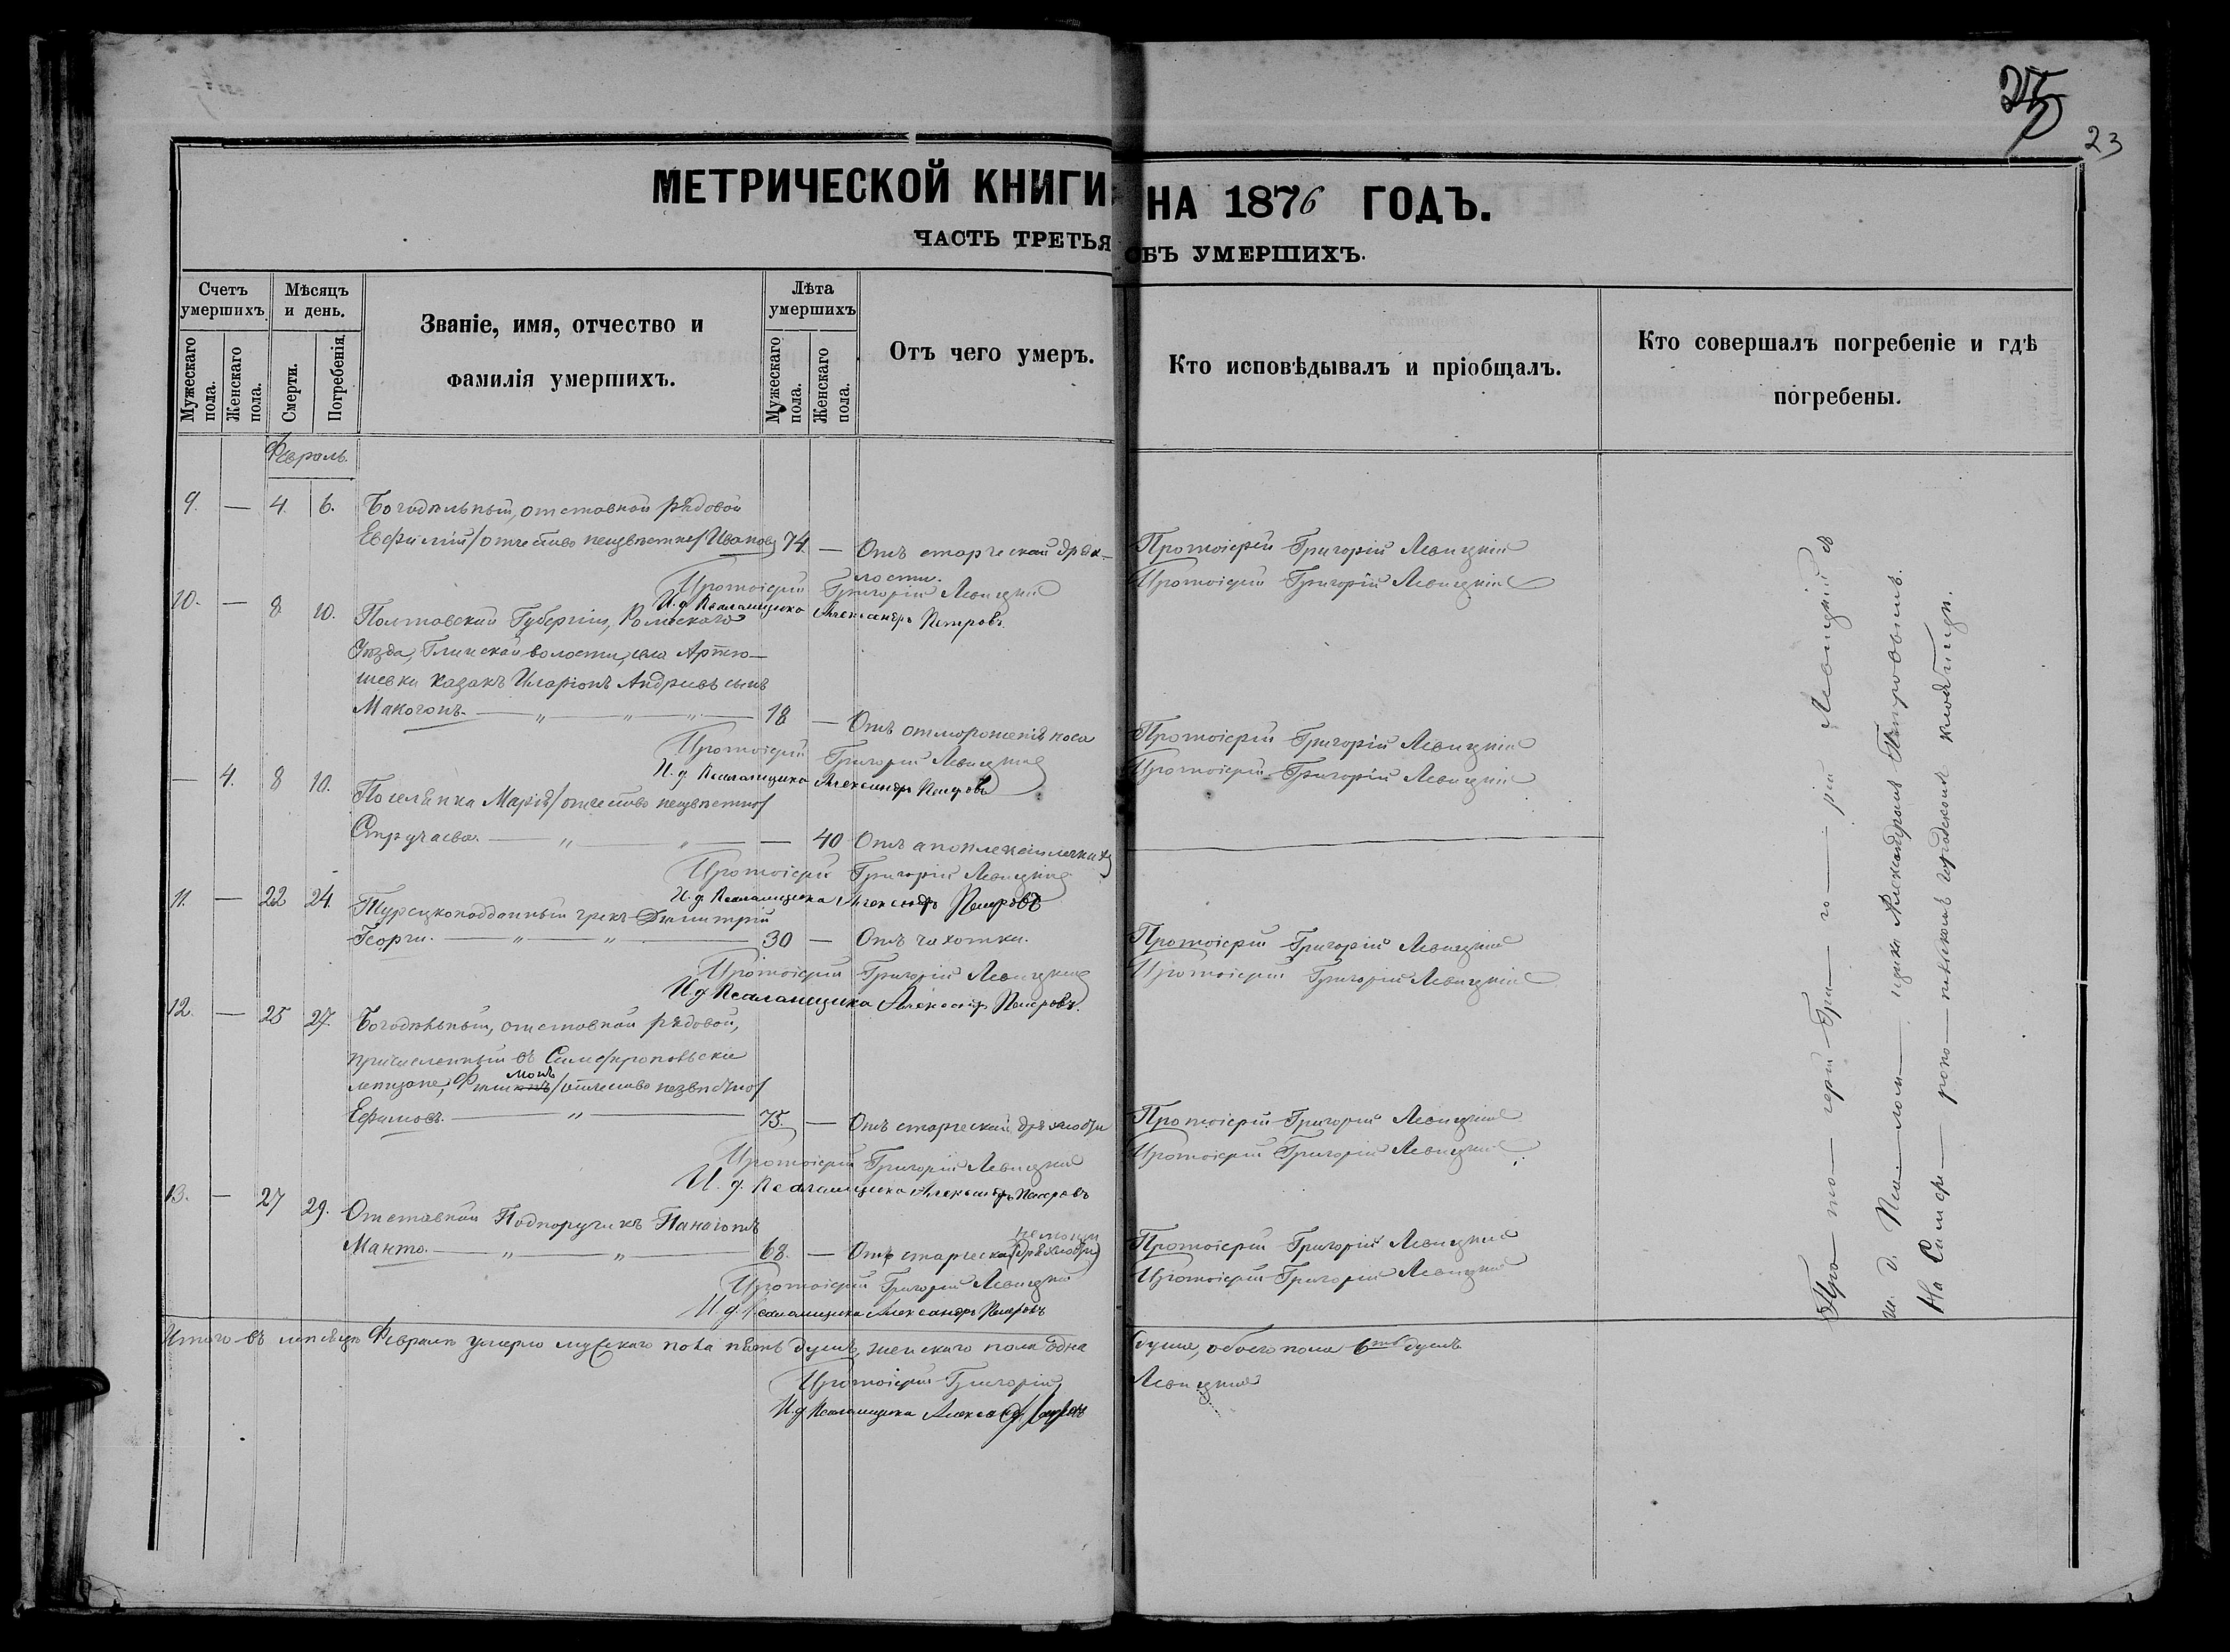 25
23
МЕТРИЧЕСКОЙ КНИГИ НА 1876 ГОДЪ.
ЧАСТЬ ТРЕТЬЯ ОБЪ УМЕРШИХЪ.
Счетъ умершихъ.
Мужескаго пола.
Женскаго пола.
Мѣсяцъ и день.
Смерти.
Погребенія.
Званіе, имя, отчество и
фамилія умершихъ.
Лѣта умершихъ
Мужескаго пола.
Женскаго пола.
Отъ чего умеръ.
Кто исповѣдывалъ и пріобщалъ.
Кто совершалъ погребеніе и гдѣ
погребены.
Февраль.
9. — 4. 6. Богодѣльный, отставной рядовой
Евфимій /отчество неизвѣстно/ Ивановъ 74 — Отъ старческой дрях-
лости.
Протоіерей Григорій Левицкій
Протоіерей Григорій Левицкій
Протоіерей Григорій Левицкій
И. д. Псаломщика Александръ Петровъ.
10. — 8 10. Полтавской Губерніи, Роменскаго
Уѣзда, Глинской волости, села Артю-
шевки казакъ Иларіонъ Андреевъ сынъ
Макогонъ. — „ — „ — „ — 18 — Отъ отмороженія носа
Протоіерей Григорій Левицкій
Протоіерей Григорій Левицкій
Протоіерей Григорій Левицкій
И. д. Псаломщика Александръ Петровъ
— 4. 8 10. Поселянка Марія /отчество неизвѣстно/
Стручаева. — „ — „ — — 40 Отъ апоплексіи легкихъ
Протоіерей Григорій Левицкій
И. д. Псаломщика Александръ Петровъ
11. — 22 24. Турецкоподданный грекъ Димитрій
Георги. — „ — „ — 30 — Отъ чахотки.
Протоіерей Григорій Левицкій
Протоіерей Григорій Левицкій
Протоіерей Григорій Левицкій
И. д. Псаломщика Александръ Петровъ.
12. — 25 27. Богодѣльный, отставной рядовой,
причисленный въ Симферопольскіе
мѣщане, /отчество незвѣстно/
монъ
Ефимовъ. — „ — 75. — Отъ старческой дряхлости
Протоіерей Григорій Левицкій
Протоіерей Григорій Левицкій
Протоіерей Григорій Левицкій
И. д. Псаломщика Александръ Петровъ
13. — 27 29. Отставной Подпоручикъ Панаіотъ
Манто. — „ — „ — 68. — Отъ старческой (дряхлости)
Протоіерей Григорій Левицкій
Протоіерей Григорій Левицкій
Протоіерей Григорій Левицкій
И. д. Псаломщика Александръ Петровъ
Итого въ мѣсяцѣ Февралѣ умерло мужскаго пола пять душъ, женскаго пола одна душа, обоего пола 6ть душъ
Протоіерей Григорій Левицкій
И. д. Псаломщика Александръ Петровъ
Про— то— іерей Гри— го— рій Левицкій съ
и. д. Пса— ломщика Александромъ Петровымъ.
На Симфе— ропо— польскомъ городскомъ кладбищѣ.